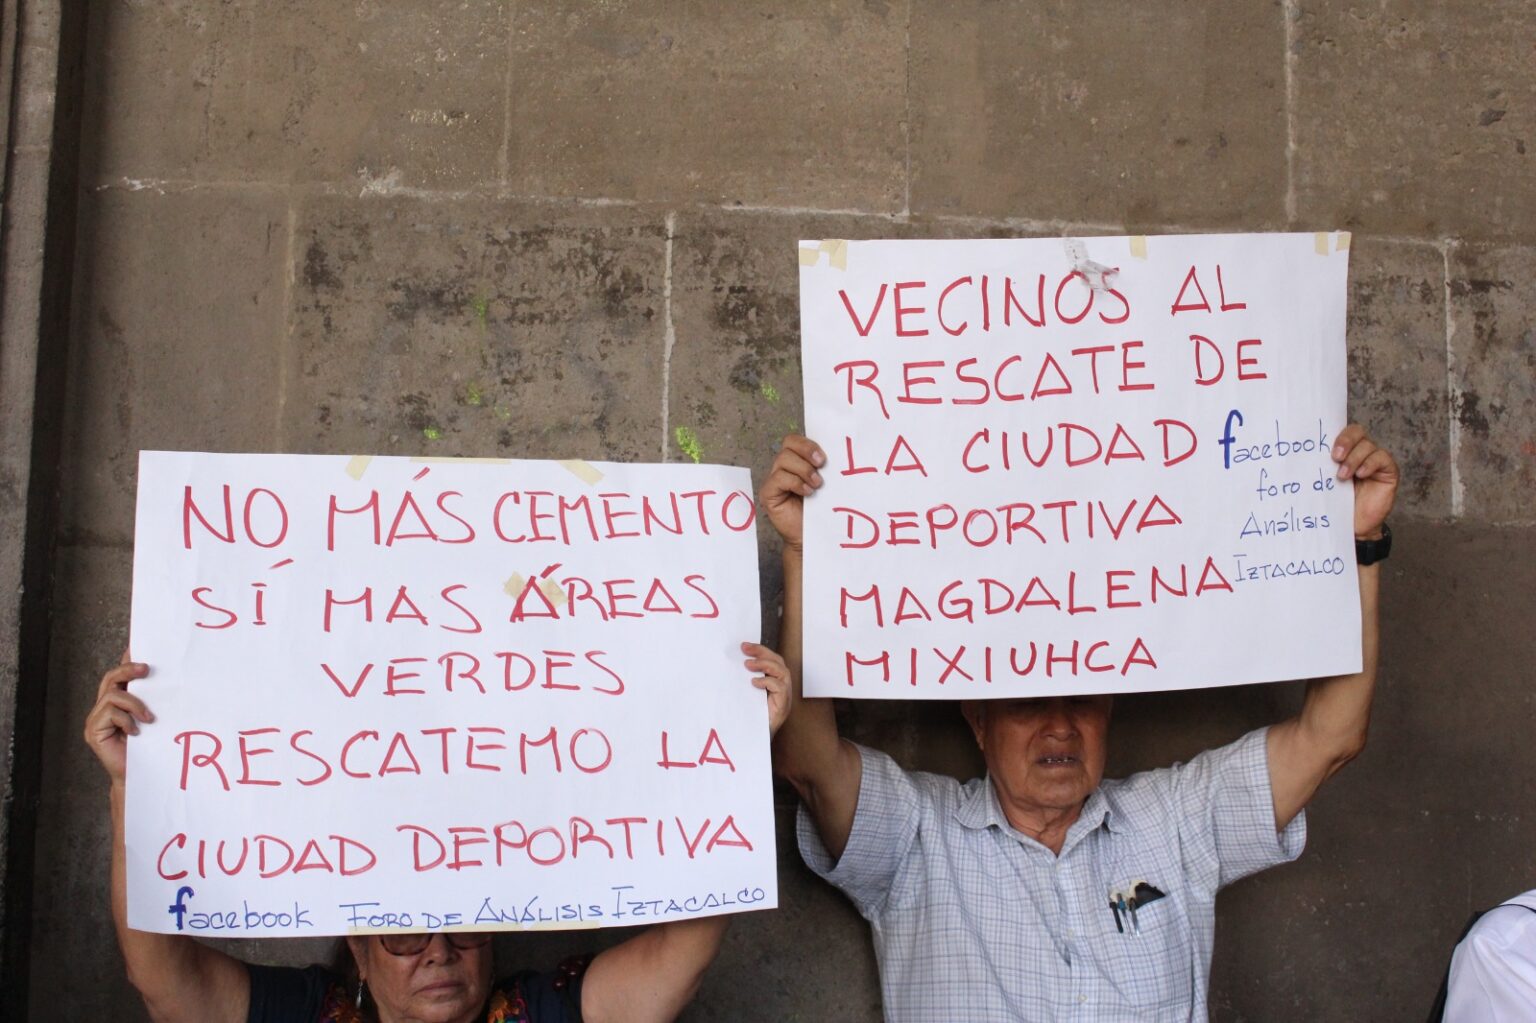 NO MÁS CEMENTO
SÍ MAS ÁREAS
VERDES
RESCATEMO LA
CIUDAD DEPORTIVA
facebook FORO DE ANÁLISIS IZTACALCO
VECINOS AL
RESCATE DE
LA CIUDAD
DEPORTIVA
MAGDALENA
MIXIUHCA
facebook
foro de
Análisis
IZTACALCO